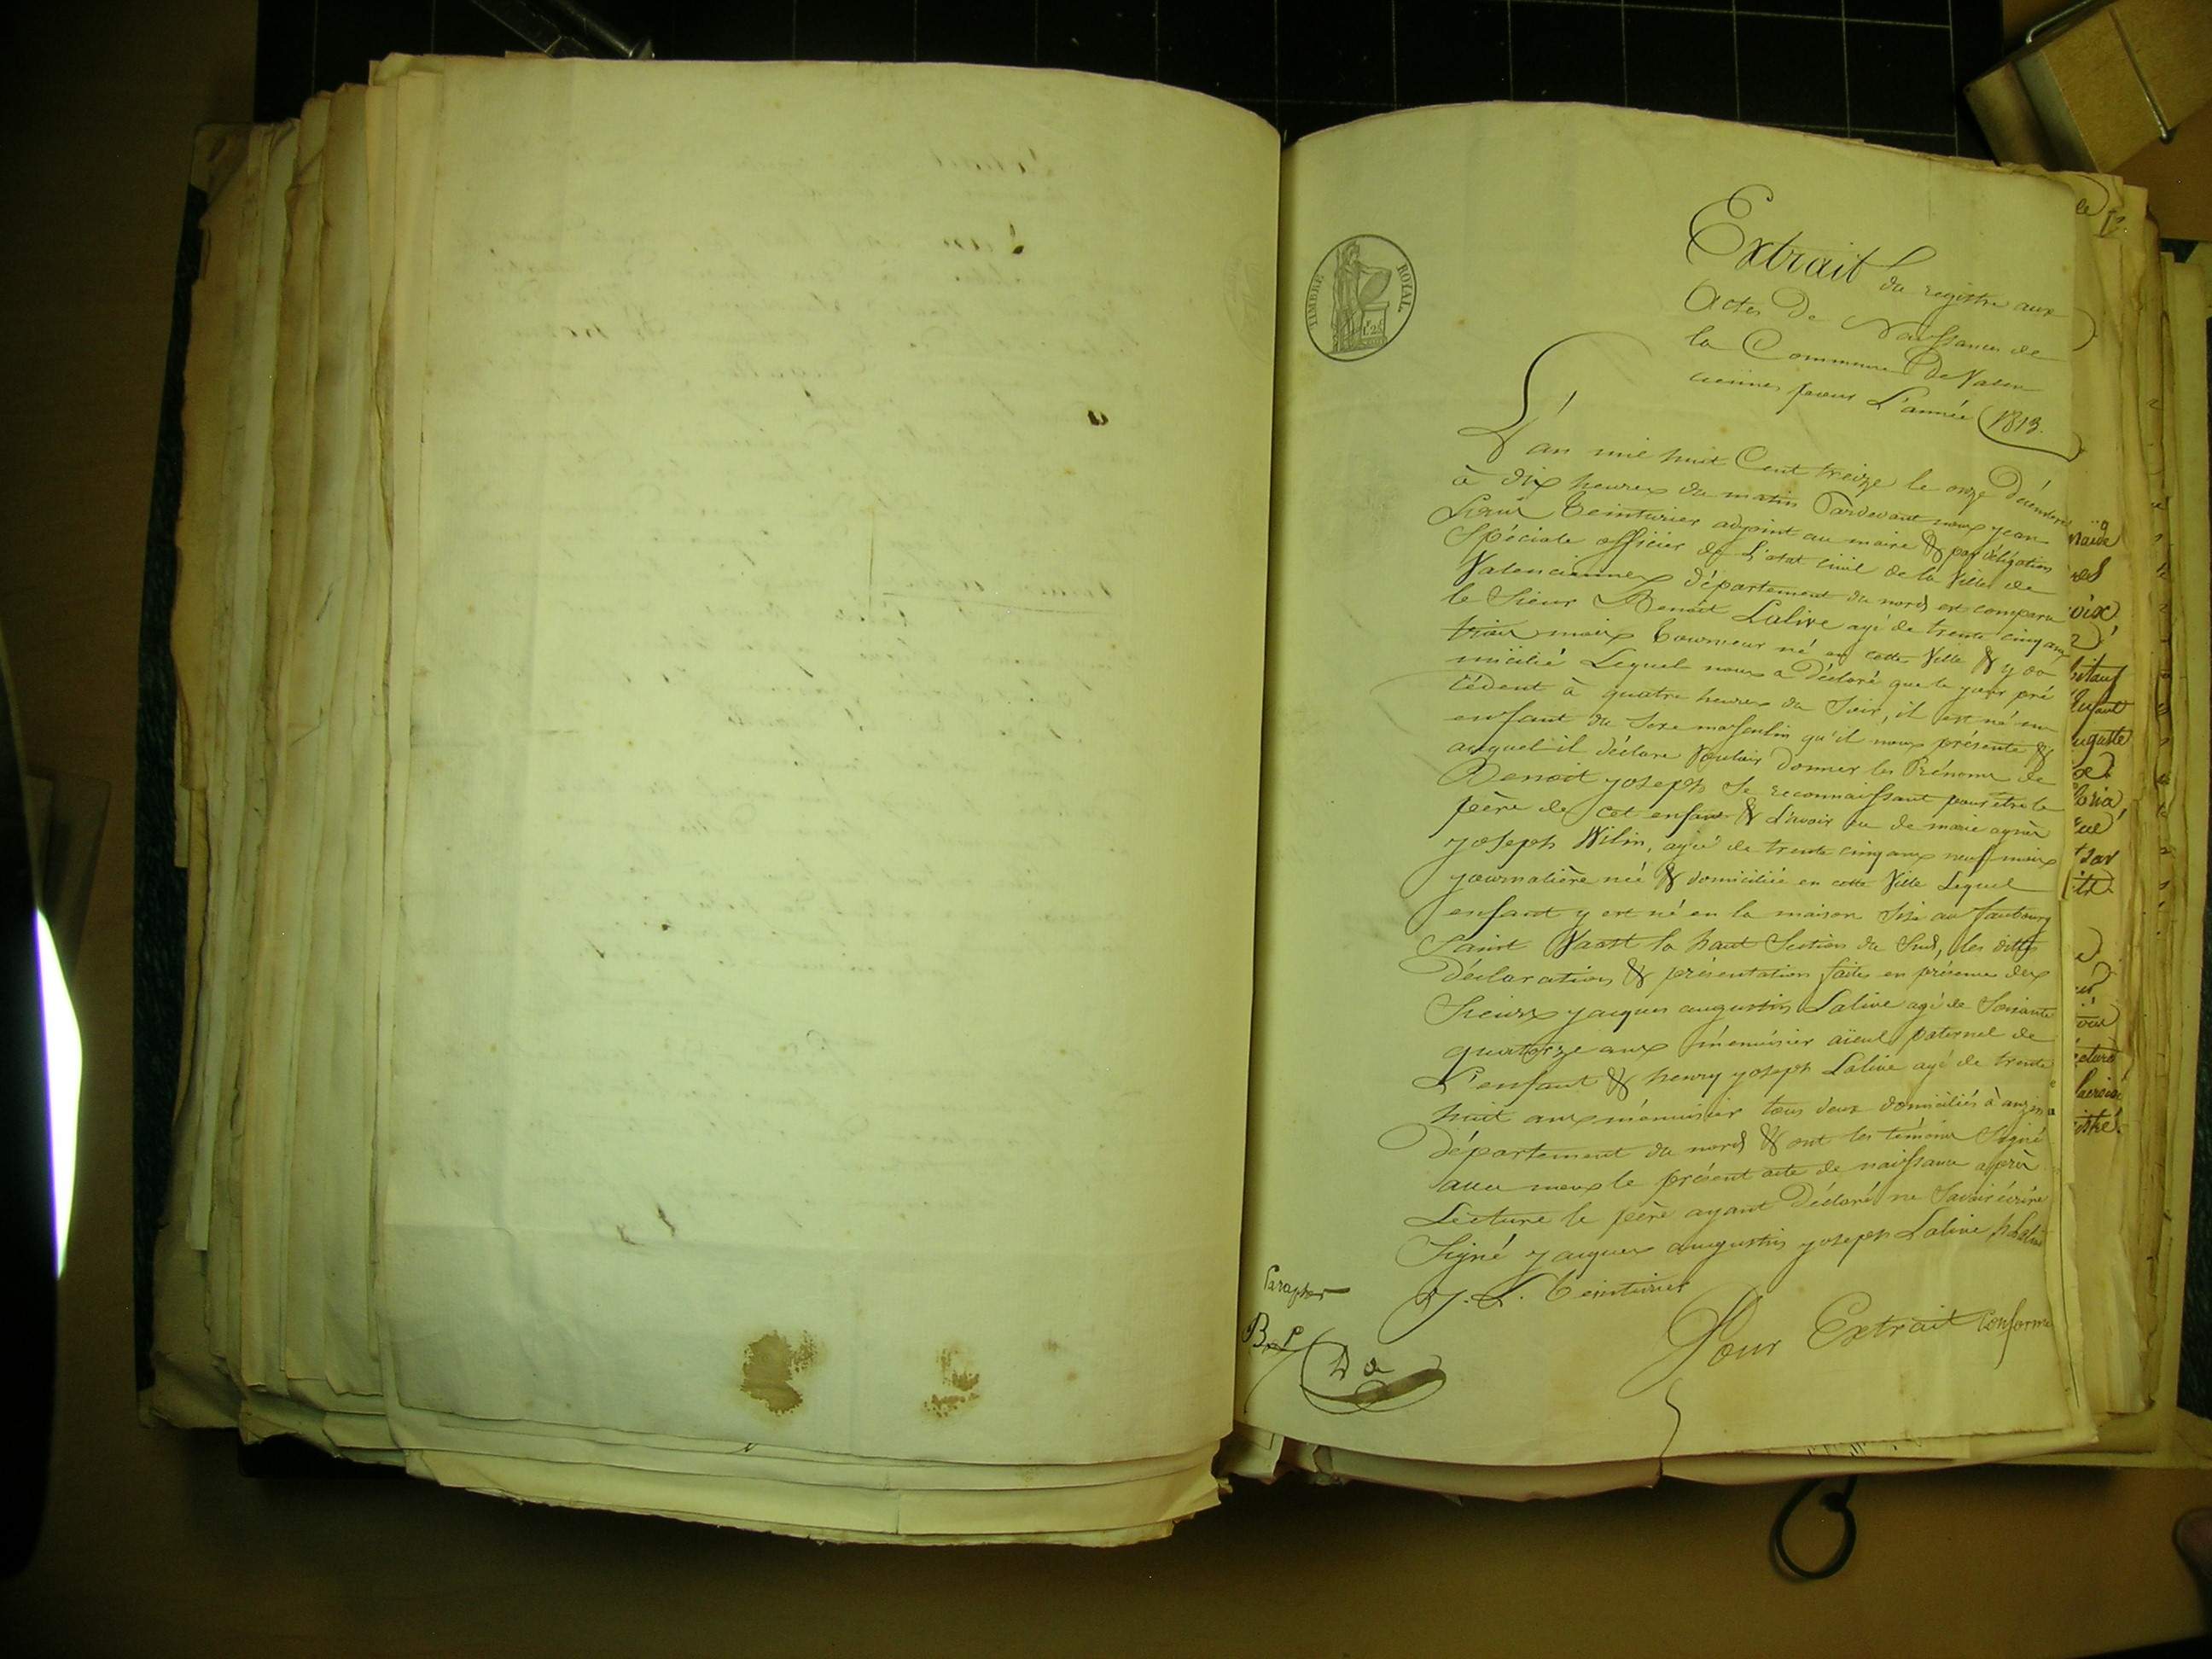 TIMBRE ROYAL
1F.25
Extrait du registre aux
Actes De Naissances de
la Commune De Valen
ciennes pour L'année 1813.
L'an mil huit Cent treize le onze Décembre
à dix heures du matin Pardevant nous jean
Teinturier adjoint au maire & par délégation
Spéciale officier de L'état civil de la Ville de
Valenciennes département du nord est comparu
le Sieur Benoit Lalive agé de trente cinq ans
trois mois Tourneur né en cette Ville & y do
micilié Lequel nous a Déclaré que le jour pré
cédent à quatre heures du Soir, il est né un
enfant du Sexe masculin qu'il nous présente &
auquel il déclare Vouloir Donner les Prénoms de
Benoit joseph Se reconnaissant pour être le
père de cet enfant & L'avoir eu de marie agnès
joseph Wilin, agée de trente cinq ans neuf mois
journalière née & domiciliée en cette Ville Lequel
enfant y est né en la maison Sise au faubourg
Saint Vaast la haut Section du Sud, les dittes
Déclaration & présentation faites en présence des
Sieurs jacques augustin Lalive agé de Soixante
quatorze ans menuisier aïeul paternel de
L'enfant & henry joseph Lalive agé de trente
huit ans menuisier tous deux domiciliés à anzin
Département du nord & ont les témoins Signé
avec nous le présent acte de naissance après
Lecture le père ayant Déclaré ne Savoir écrire
Signé jacques augustin joseph Lalive h Lalive
J. L. Teinturier
Pour Extrait Conforme